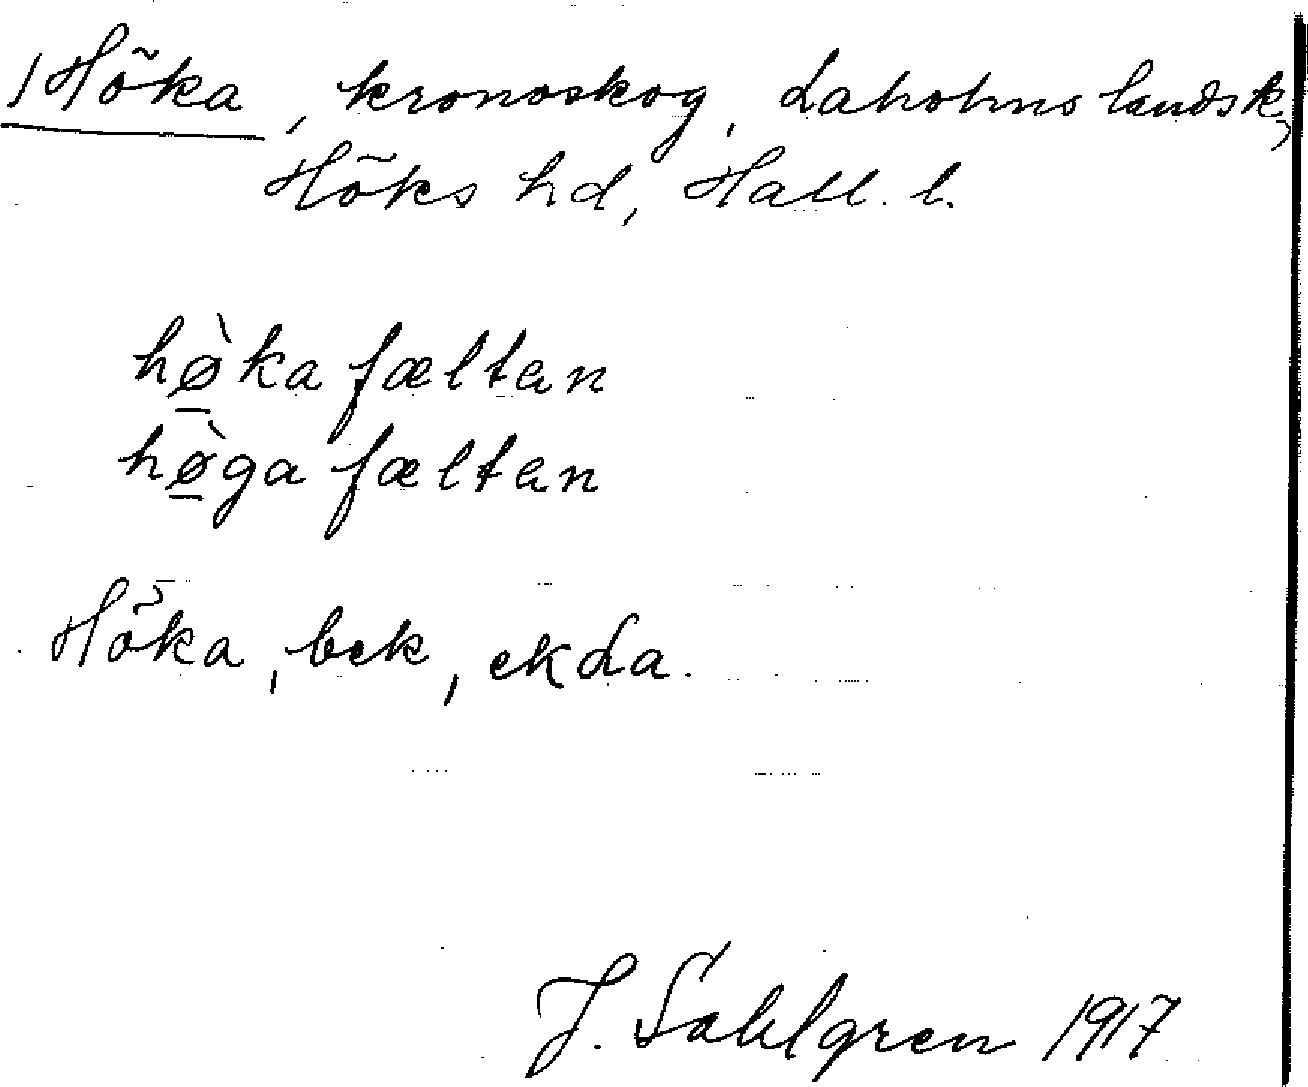 1 Höka, kronoskog, Laholms landsk,
Höks hd, Hall. l.
hø̠̀ka fæltan
hø̠̀ga fæltan
Höka, bek, ekLa.
J. Sahlgren 1917